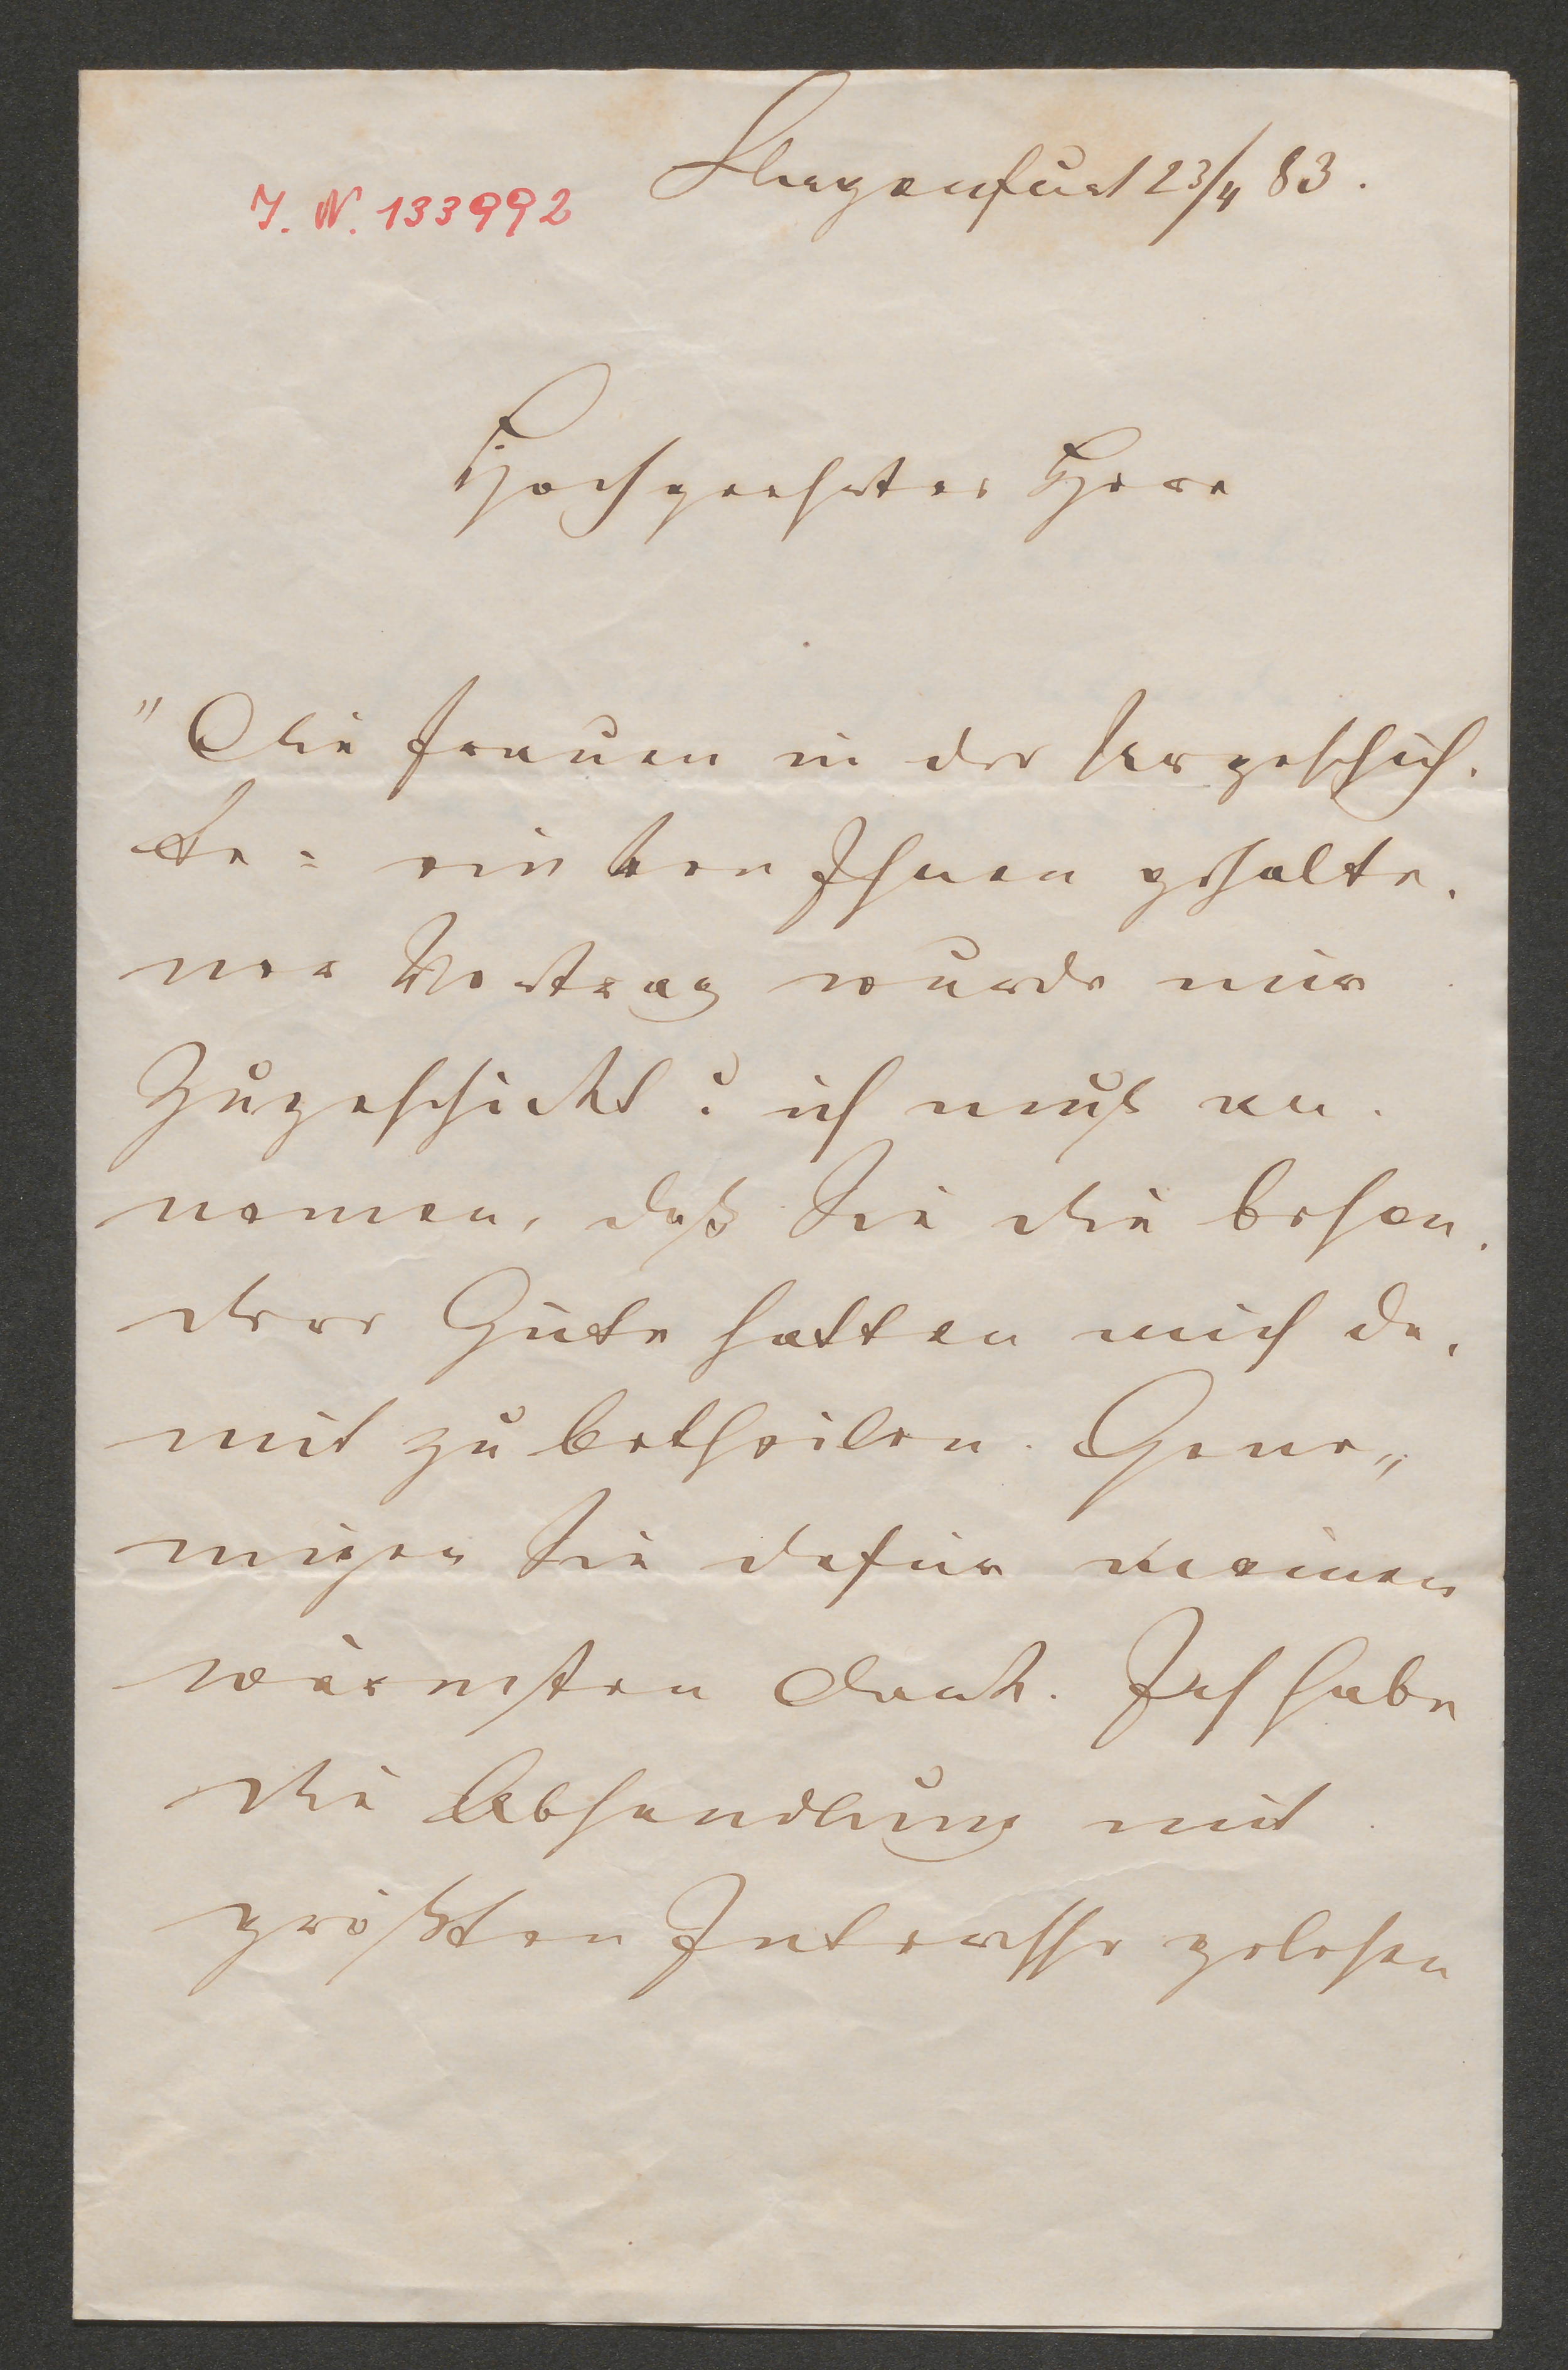 Klagenfurt 23/4 83.
J. N. 133992
Hochgeehrter Herr
"Die Frauen in der Urgeschich-
te = ein von Ihnen gehalte-
ner Vortrag wurde mir
zugeschickt u ich muß an-
nemen, daß Sie die beson-
dere Güte hatten mich da-
mit zu betheilen. Gene„
migen Sie dafür meinen
wärmsten Dank. Ich habe
die Abhandlung mit
größten Interesse gelesen